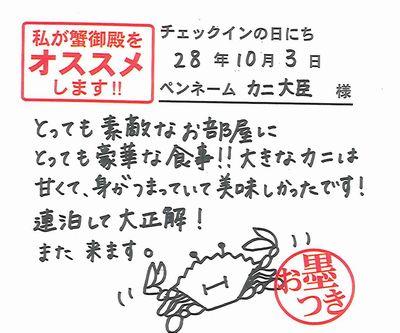 私が蟹御殿を
オススメ
します!!
チェックインの日にち
28年10月3日
ペンネーム カニ大臣 様
とっても素敵なお部屋に
とっても豪華な食事!!大きなカニは
甘くて、身がつまっていて美味しかったです!
連泊して大正解!
また来ます。
お墨つき